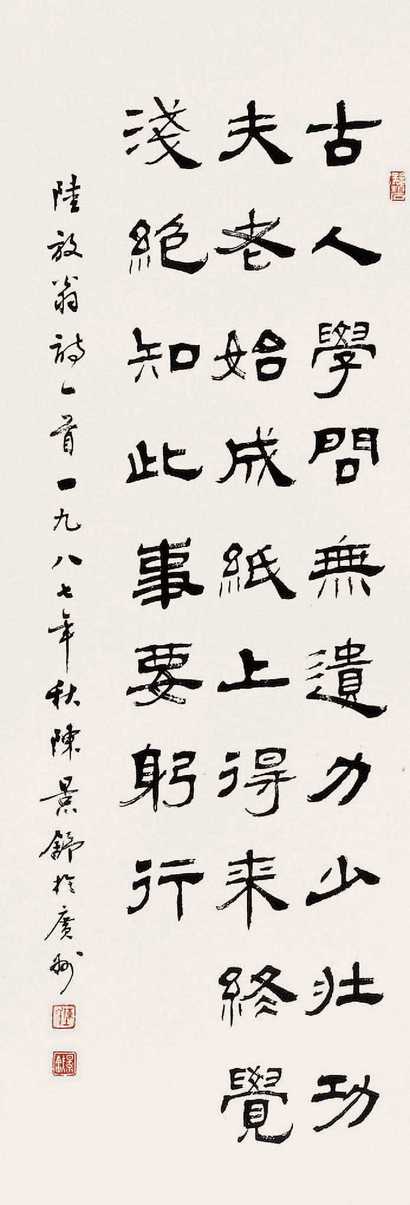 古人學問無遺力少壯功
夫老始成紙上得來終覺
淺絕知此事要躬行
陸放翁詩一首一九八七年秋陳景舒於廣州